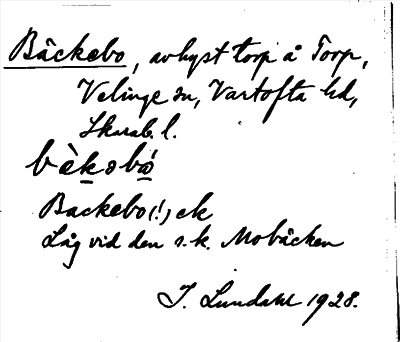 Bäckebo, avhyst torp å Torp,
Velinge sn, Vartofta hd,
Skarab. l.
bèkobó
Backebo (!) ek
Låg vid den s.k. Mobäcken
I. Lundahl 1928.